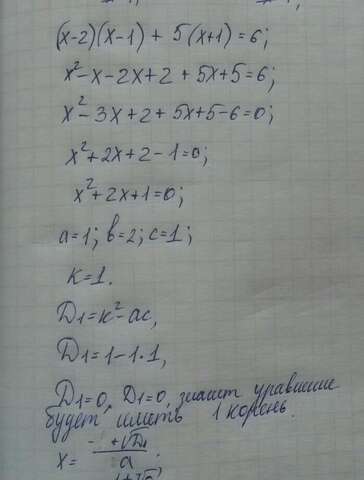 (x-2)(x-1) + 5(x+1)=6;
x²-x-2x+2+5x+5=6;
x²-3x+2+5x+5-6=0;
x²+2x+2-1=0;
x²+2x+1=0;
a=1; b=2; c=1;
к=1.
D1=к²-ac,
D1=1-1·1,
D1=0, D1=0, значит уравнение
будет иметь 1 корень.
x= +√D1 / a ;